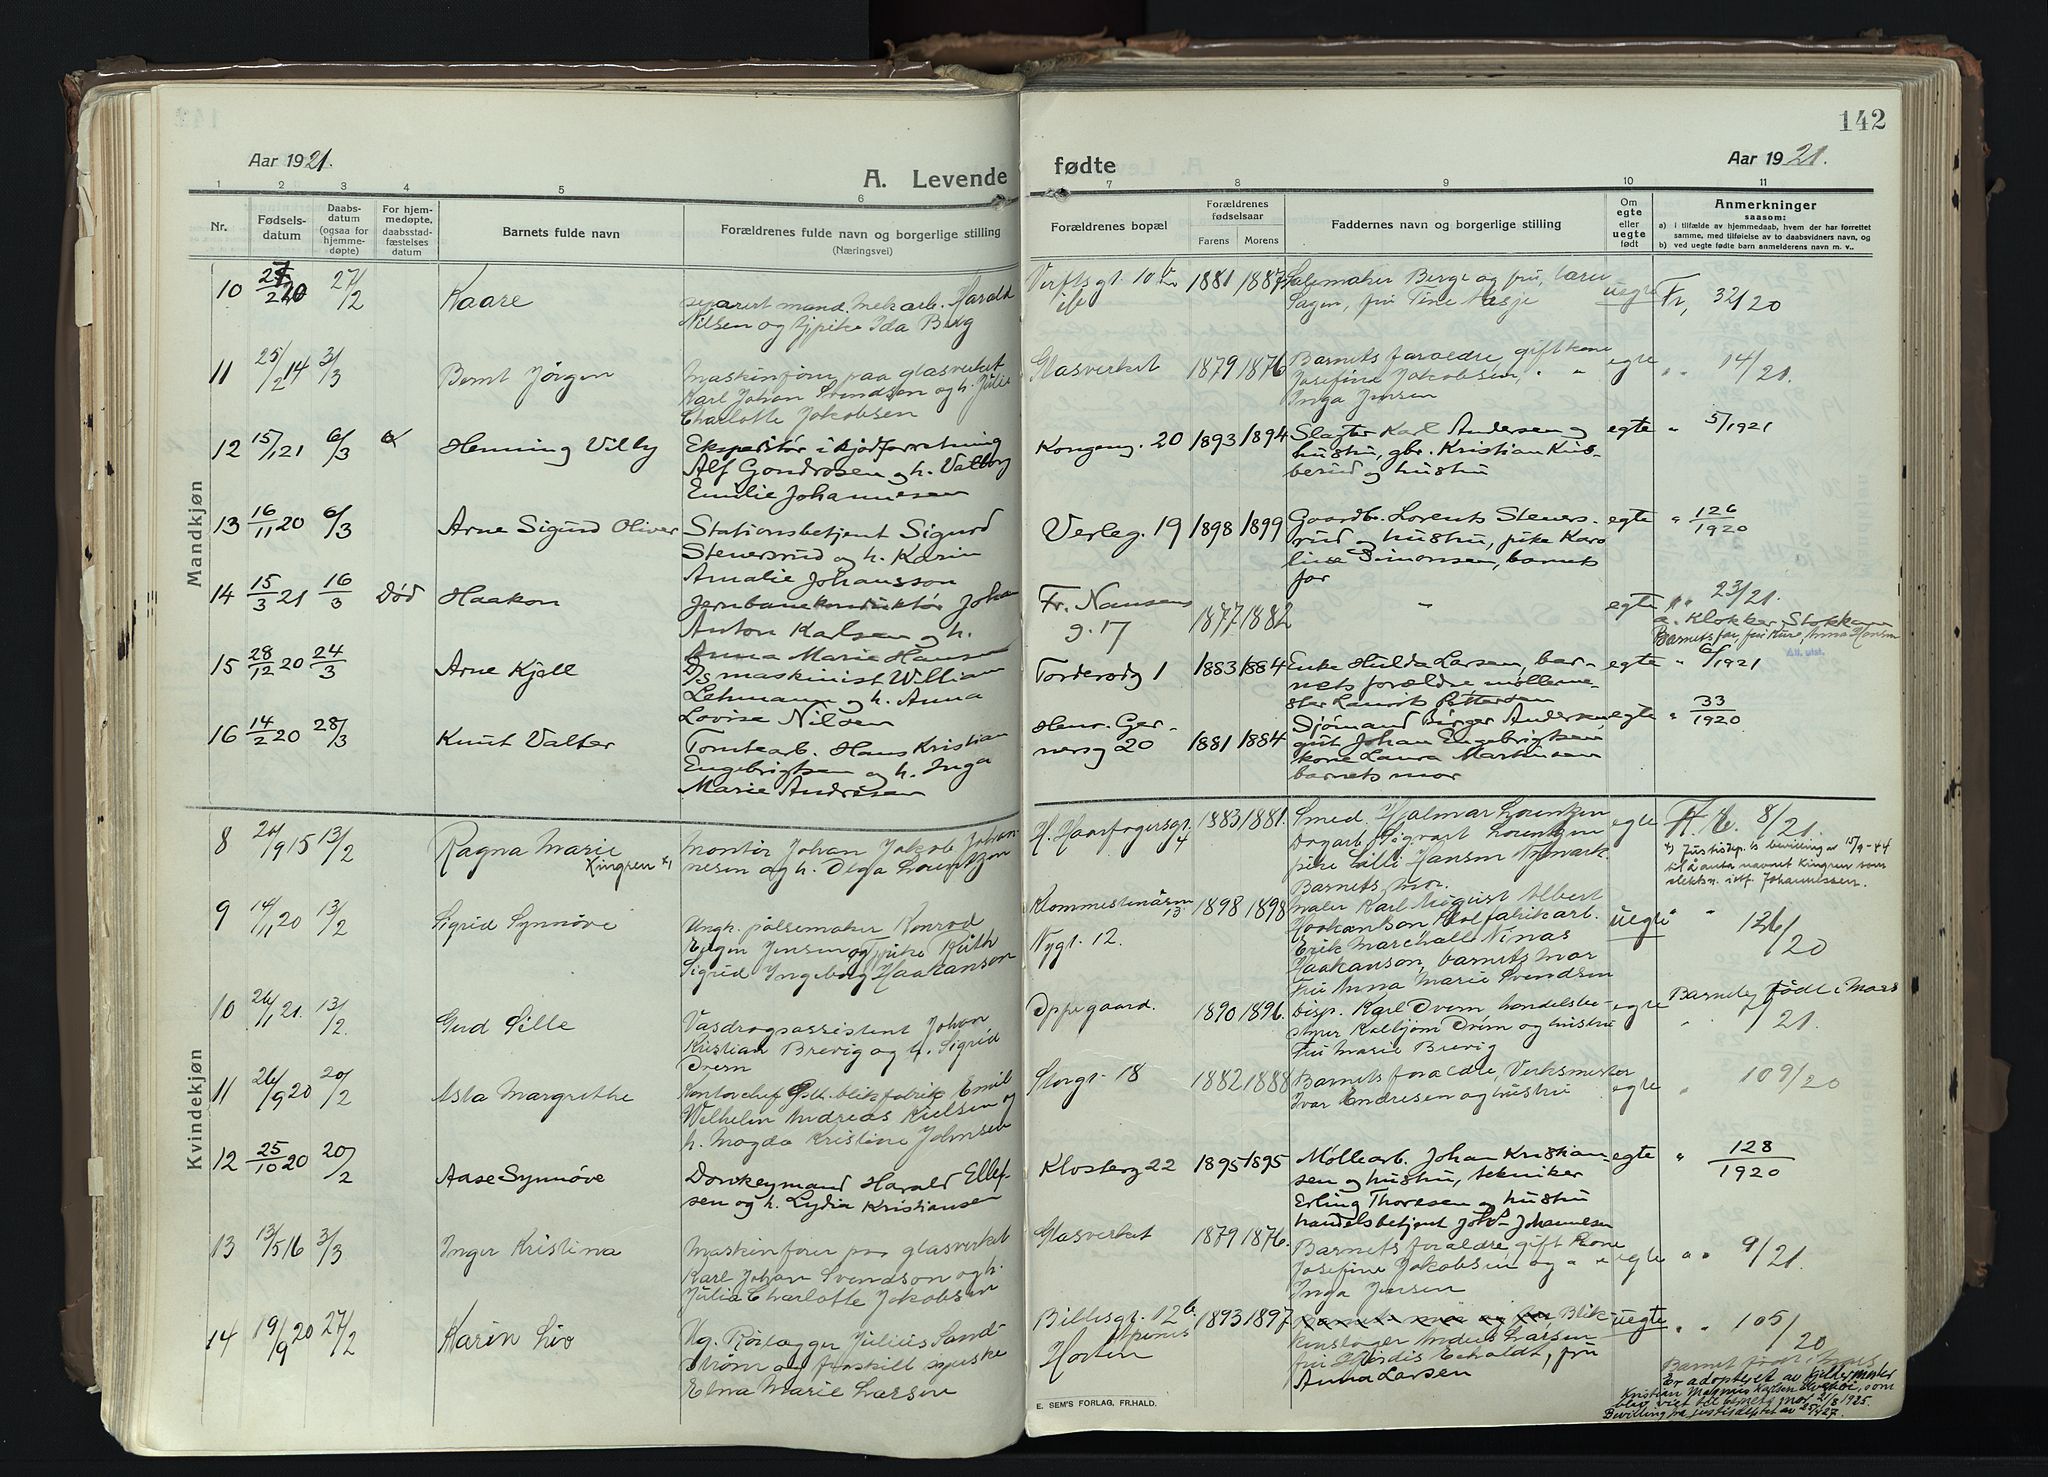 142
Aar 1921.
A. Levende
fødte
Aar 1921.
1 2 3 4 5 6
7 8 9 10 11
Nr.
Fødsels-
datum
Daabs-
datum
(ogsaa for
hjemme-
døpte)
For hjem-
medøpte,
daabsstad-
fæstelses
datum
Barnets fulde navn
Forældrenes fulde navn og borgerlige stilling
(Næringsvei)
Forældrenes bopæl
Forældrenes
fødselsaar
Farens Morens
Faddernes navn og borgerlige stilling
Om
egte
eller
uegte
født
Anmerkninger
saasom:
a) i tilfælde av hjemmedaab, hvem der har forrettet
samme, med tilføielse av to daabsvidners navn, og
b) ved uegte fødte barn anmelderens navn m. v..
Mandkjøn
10 27/2 20 27/2 Kaare
separert mand. mek.arb. Harald
Nilsen og pike Ida Berg
Verftsgt. 10 b 1881 1887
Berge og fru,
fru Tine Næsje
uegte Fr, 32/20
11 25/2 14 3/3 Bernt Jörgen
Maskinfører paa glasverket
Karl Johan Svendsen og h. Julie
Charlotte Jakobsen
Glasverket 1879 1876
Barnets foraeldre, gift kone
Josefine Jakobsen, " "
Inga Jensen
egte " " 14/21.
12 15/1 21 6/3 Henning Villy
Ekspeditør i kjødforretning
Alf Gondrosen og h. Valborg
Emilie Johannesen
Kongeng. 20 1893 1894
Slagter Karl Andersen og
hustru, gbr. Kristian Kus-
berud og hustru
egte " 5/1921
13 16/11 20 6/3 Arne Sigurd Oliver
Stationsbetjent Sigurd
Stenersrud og h. Karin
Amalie Johansson
Verleg. 19 1898 1899
Gaardbr. Lorents Steners-
rud og hustru, pike Karo
line Simonsen, barnets
far
egte " 126/1920
14 15/3 21 16/3 Död Haakon
Jernbanekonduktør Johan
Anton Karlsen og h.
Anna Marie Hansen
Fr. Nansens
g. 17 1877 1882
"
egte " " 23/21.
a. Klokker Stokkan
Barnets far, fru Kure, Anna Hansen
15 28/12 20 24/3 Arne Kjell
D/s maskinist William
Lehmann og h. Anna
Lovise Nilsen
Tordensdg 1 1883 1884
Enke Hulda Larsen, bar-
nets forældre möllerme-
ster Laurits Pettersen
egte " 6/1921
16 14/2 20 28/3 Knut Valter
Tomtearb. Hans Kristian
Engebrigtsen og h. Inga
Marie Andresen
Henr. Ger-
nersg 20 1881 1884
Sjömand Birger Andersen,
gut Johan Engebrigtsen
kone Laura Martinsen
barnets mor
egte " 33/1920
Kvindekjøn
8 20/9 15 13/2 Ragna Marie
Kingren x)
Montör Johan Jakob Johan-
nesen og h. Olga Lorentzen
H. Haarfagersgt.
4 1883 1881.
Smed. Hjalmar Lorentzen
Sigvart Lorentzen
pike Lilli Hansen Nymark
Barnets mor.
egte 8/21.
x) Justisdep. s bevilling av 15/9-44
til å anta navnet Kingren som
slektsn. istf. Johannessen.
9 14/11 20 13/2 Sigrid Synnöve
Ungk. pölsemaker Konrod
Jensen og pike Ruth
Sigrid Ingeborg Haakanson
13
Nygt. 12. 1898 1898
Maler Karl Albert
Haakanson,
Erik
Haakanson, barnets mor
Fru Anna Marie Svendsen
uegte " " 126/20
10 26/1 21. 13/2. Gud Lille
Vasdragsassistent Johan
Kristian Brevig og h. Sigrid
Drem
Oppegaard. 1890 1896.
Disp. Karl Drem handelsbe-
styrer Kolbjørn Drem og hustru
Fru Marie Brevig
egte Barnet födt i Moss
" " 21.
11 26/9 20 20/2 Asta Margrethe
Kontorchef blikfabrik Emil
Wilhelm Andreas Nielsen og
h. Magda Kristine Johnsen
Storgt. 18 1882 1888
Barnets foraeldre, Verksmester
Ivar Endresen og hustru
egte " 109/20
12 25/10 20 20/2 Aase Synnøve
Donkeymand Harald Ellef-
sen og h. Lydia Kristiansen
Klosterg 22 1895 1895
Möllearb. Johan Kristian-
sen og hustru, tekniker
Erling Thoresen og hustru
handelsbetjent Johs Johannesen
egte " 128/1920
13 13/5 16 3/3 Inger Kristina
Maskinfører paa glasverket
Karl Johan Svendson og h.
Julia Charlotte Jakobsen
Glasverket 1879 1876.
Barnets foraeldre, gift kone
Josefine Jakobsen og
Inga Jensen
egte " " 9/21.
14 19/9 20 27/2 Karin Liv
Ug. Rörlægger Julius Sand-
ström og fraskilt
Elna Marie Larsen
Billesgt. 12 b.
Horten 1893 1897
Barnets mor og far, Blik-
kenslager Anders Larsen
fru Hjördis Echoldt, fru
Anna Larsen
uegte " " 105/20
Barnet födt i Moss
Er adopteret av fyldermester
Kristian Magnus Karlsen, som
blev viet til barnets mor 21/8 1925.
Bevilling fra justisdeptet av 25/4 27.
E. SEM'S FORLAG, FR.HALD.